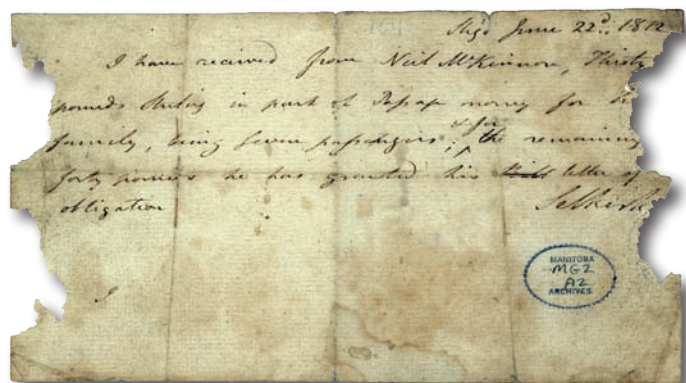 Sligo June 22d.. 1812
I have recieved from Neil McKinnon, Thirty
pounds Sterling in part of Passage money for his
family, being seven passengers; & for the remaining
forty pounds he has granted his letter of
obligation Selkirk
MANITOBA
MG2
A2
ARCHIVES